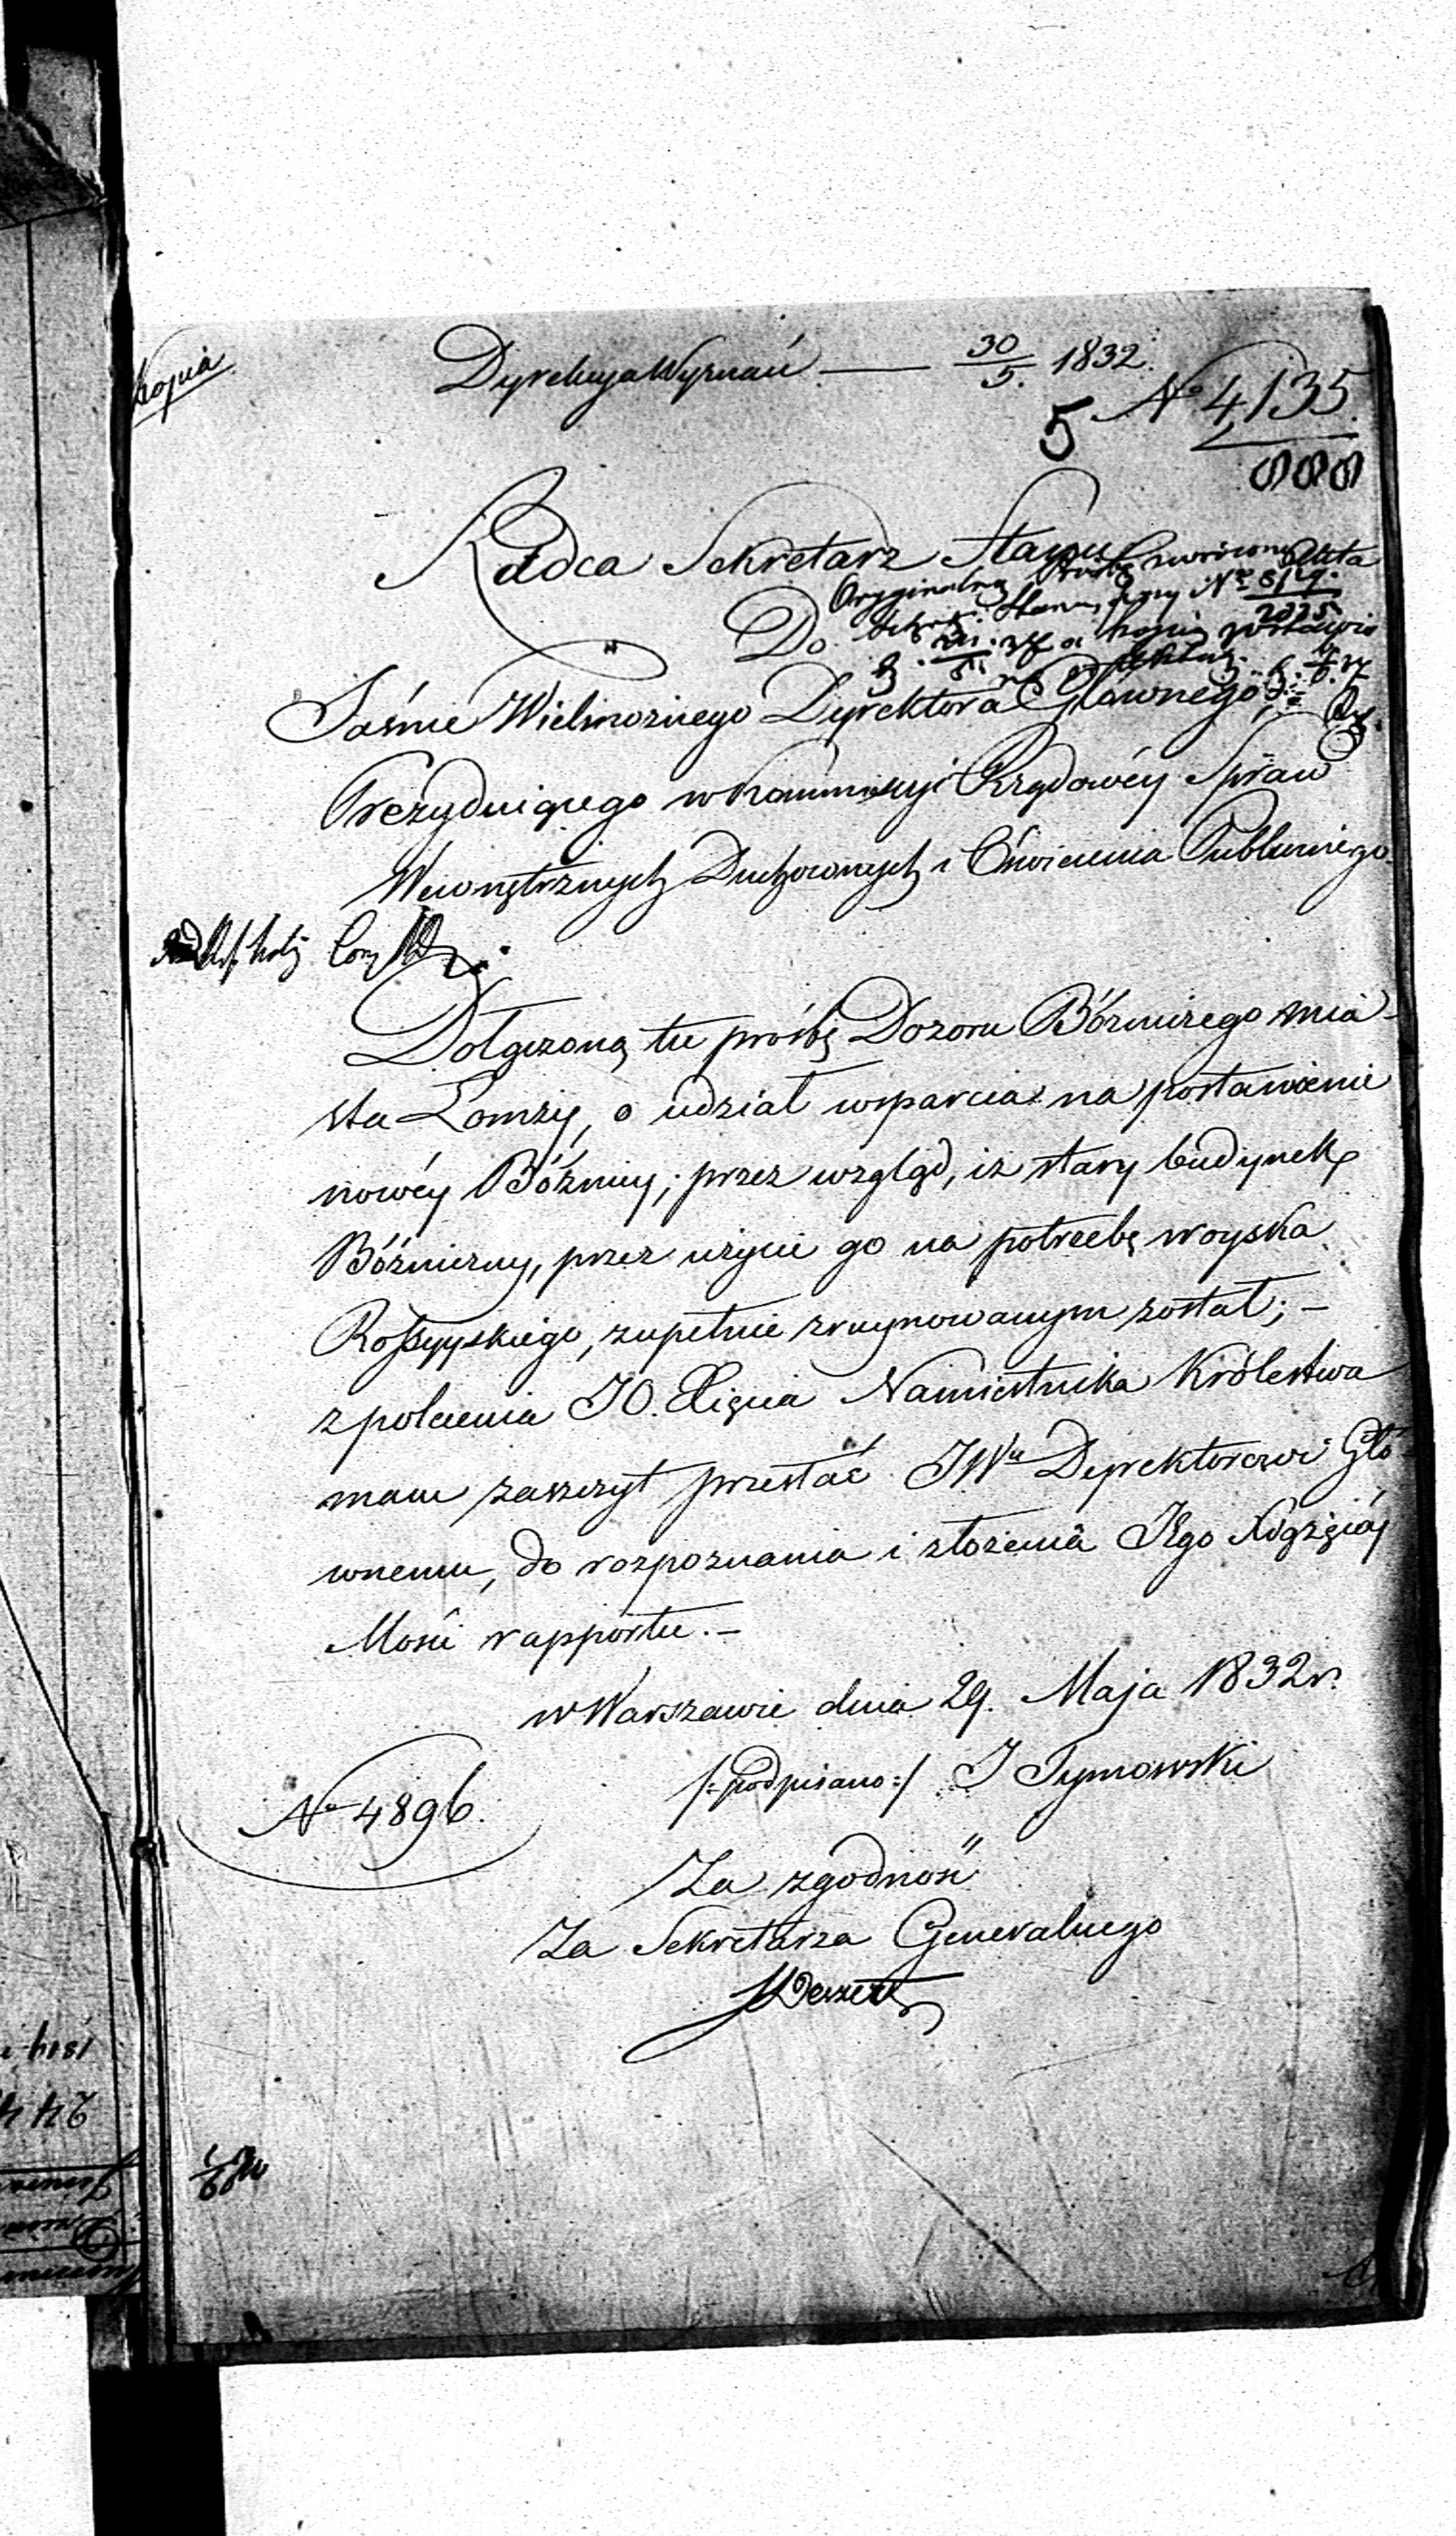 Kopia
Dyrekcya Wyznań — 30/5. 1832.
No 4135.
5
888
Radca Sekretarz Stanu
Oryginalną prośbę zwrócono
Do
Jaśnie Wielmożnego Dyrektora Głównego
Prezyduiącego w Kommissyi Rządowéy Spraw
Wewnętrznych Duchownych i Oświecenia Publicznego
Dołączoną tu prośbę Dozoru Bóżniczego mia-
sta Łomży, o udział wsparcia na postawienie
nowéy Bóźnicy; przez wzgląd, iż stary budynek
Bóźniczny, przez użycie go na potrzebę woyska
Rossyyskiego, zupełnie zruynowanym został; —
z polecenia JO. Xięcia Namiestnika Królestwa
mam zaszczyt przesłać JWu Dyrektorowi Głó
wnemu, do rozpoznania i złożenia Jego Xiążęcéj
Mości rapportu. —
w Warszawie dnia 29. Maja 1832 r.
/:podpisano:/ J Tymowski
No 4896.
Za zgodność
Za Sekretarza Generalnego